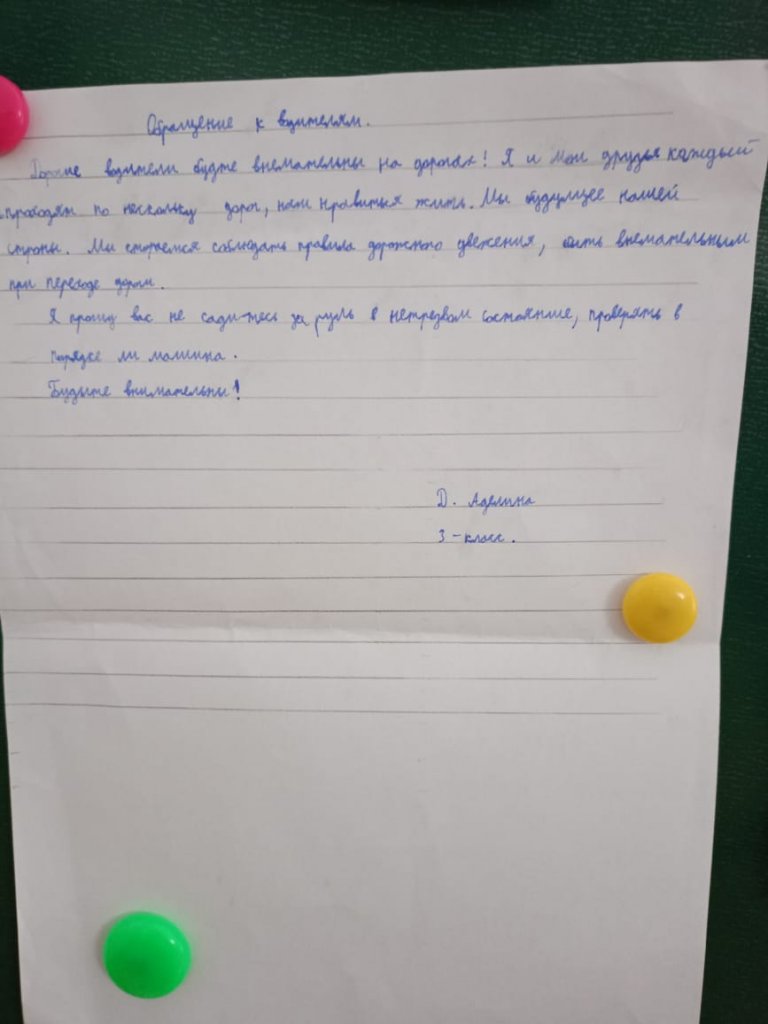 Обращение к водителям.
Дорогие водители будте внемательны на дорогах! Я и мои друзья каждый
проходям по нескольку дорог, нам нравится жить. Мы будующее нашей
страны. Мы стараемся соблюдать правила дорожного двежения, быть внемательным
при переходе дороги.
Я прошу вас не садитесь за руль в нетрезвом состояние, проверять в
порядке ли машина.
Будьте внимательны!
Д. Аделина
3-класс.